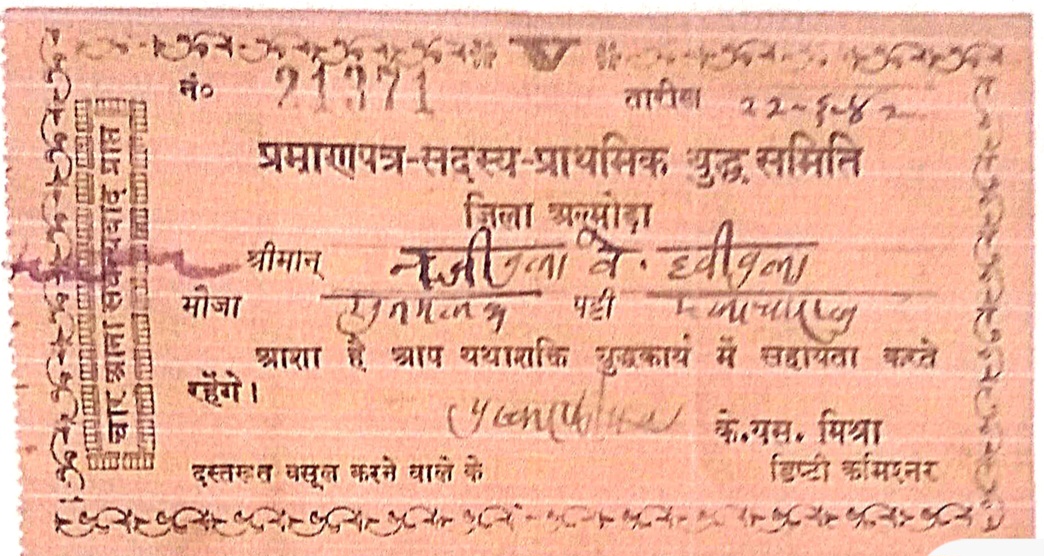 नं० 21371 तारीख 22-6-42
प्रमाणपत्र-सदस्य-प्राथमिक युद्ध समिति
जिला अल्मोड़ा
श्रीमान्
मौजा पट्टी
आशा है आप यथाशक्ति युद्धकार्य में सहायता करते
रहेंगे।
के.एस. मिश्रा
दस्तखत वसूल करने वाले के डिप्टी कमिश्नर
चार आना सधन्यवाद प्राप्त